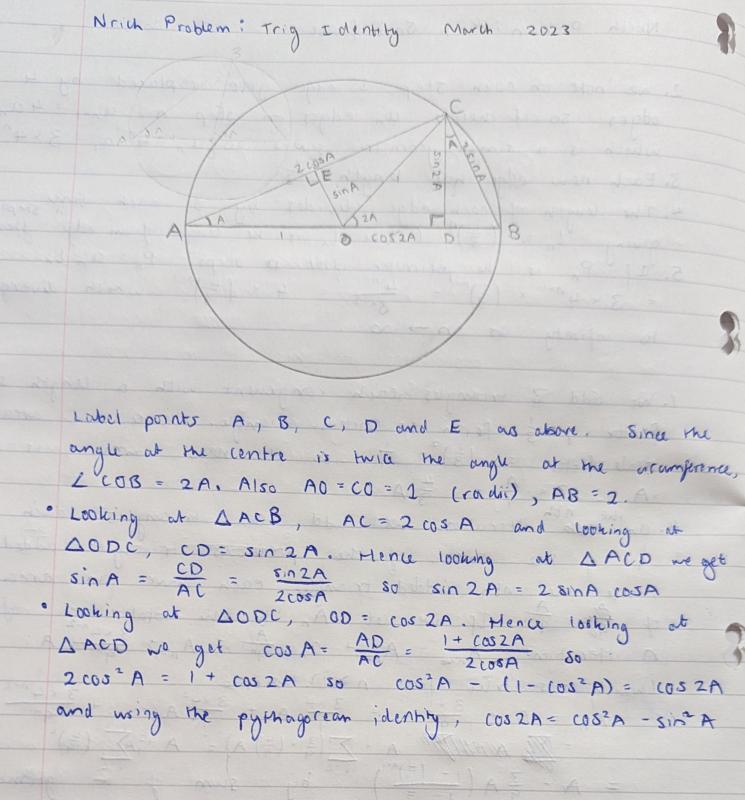 Nrich Problem: Trig Identity March 2023
C
A
2 sinA
2 cosA
sin 2A
E
sinA
A
A
2A
1
O
cos2A
D
B
Label points A, B, C, D and E as above. Since the
angle at the centre is twice the angle at the circumference,
∠COB = 2A. Also AO = CO = 1 (radii), AB = 2.
• Looking at △ACB, AC = 2 cos A and looking at
△ODC, CD = sin 2A. Hence looking at △ACD we get
sin A = CD/AC = sin2A/2cosA so sin 2A = 2 sinA cosA
• Looking at △ODC, OD = cos 2A. Hence looking at
△ACD we get cos A = AD/AC = 1 + cos2A/2cosA so
2 cos² A = 1 + cos 2A so cos²A - (1 - cos²A) = cos 2A
and using the pythagorean identity, cos2A = cos²A - sin²A